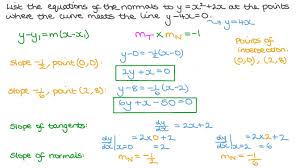 List the equations of the normals to y = x²+2x at the points
where the curve meets the line y-4x=0.
→ y=4x
y-y₁=m(x-x₁)
m_T × m_N = -1
Points of
intersection:
(0,0), (2,8)
Slope -½, point (0,0):
y-0=-½(x-0)
2y+x=0
Slope -⅙, point (2,8):
y-8=-⅙(x-2)
6y+x-50=0
Slope of tangents:
dy/dx = 2x+2
dy/dx|x=0 = 2×0+2
= 2
dy/dx|x=2 = 2×2+2
= 6
Slope of normals:
m_N = -½
m_N = -⅙